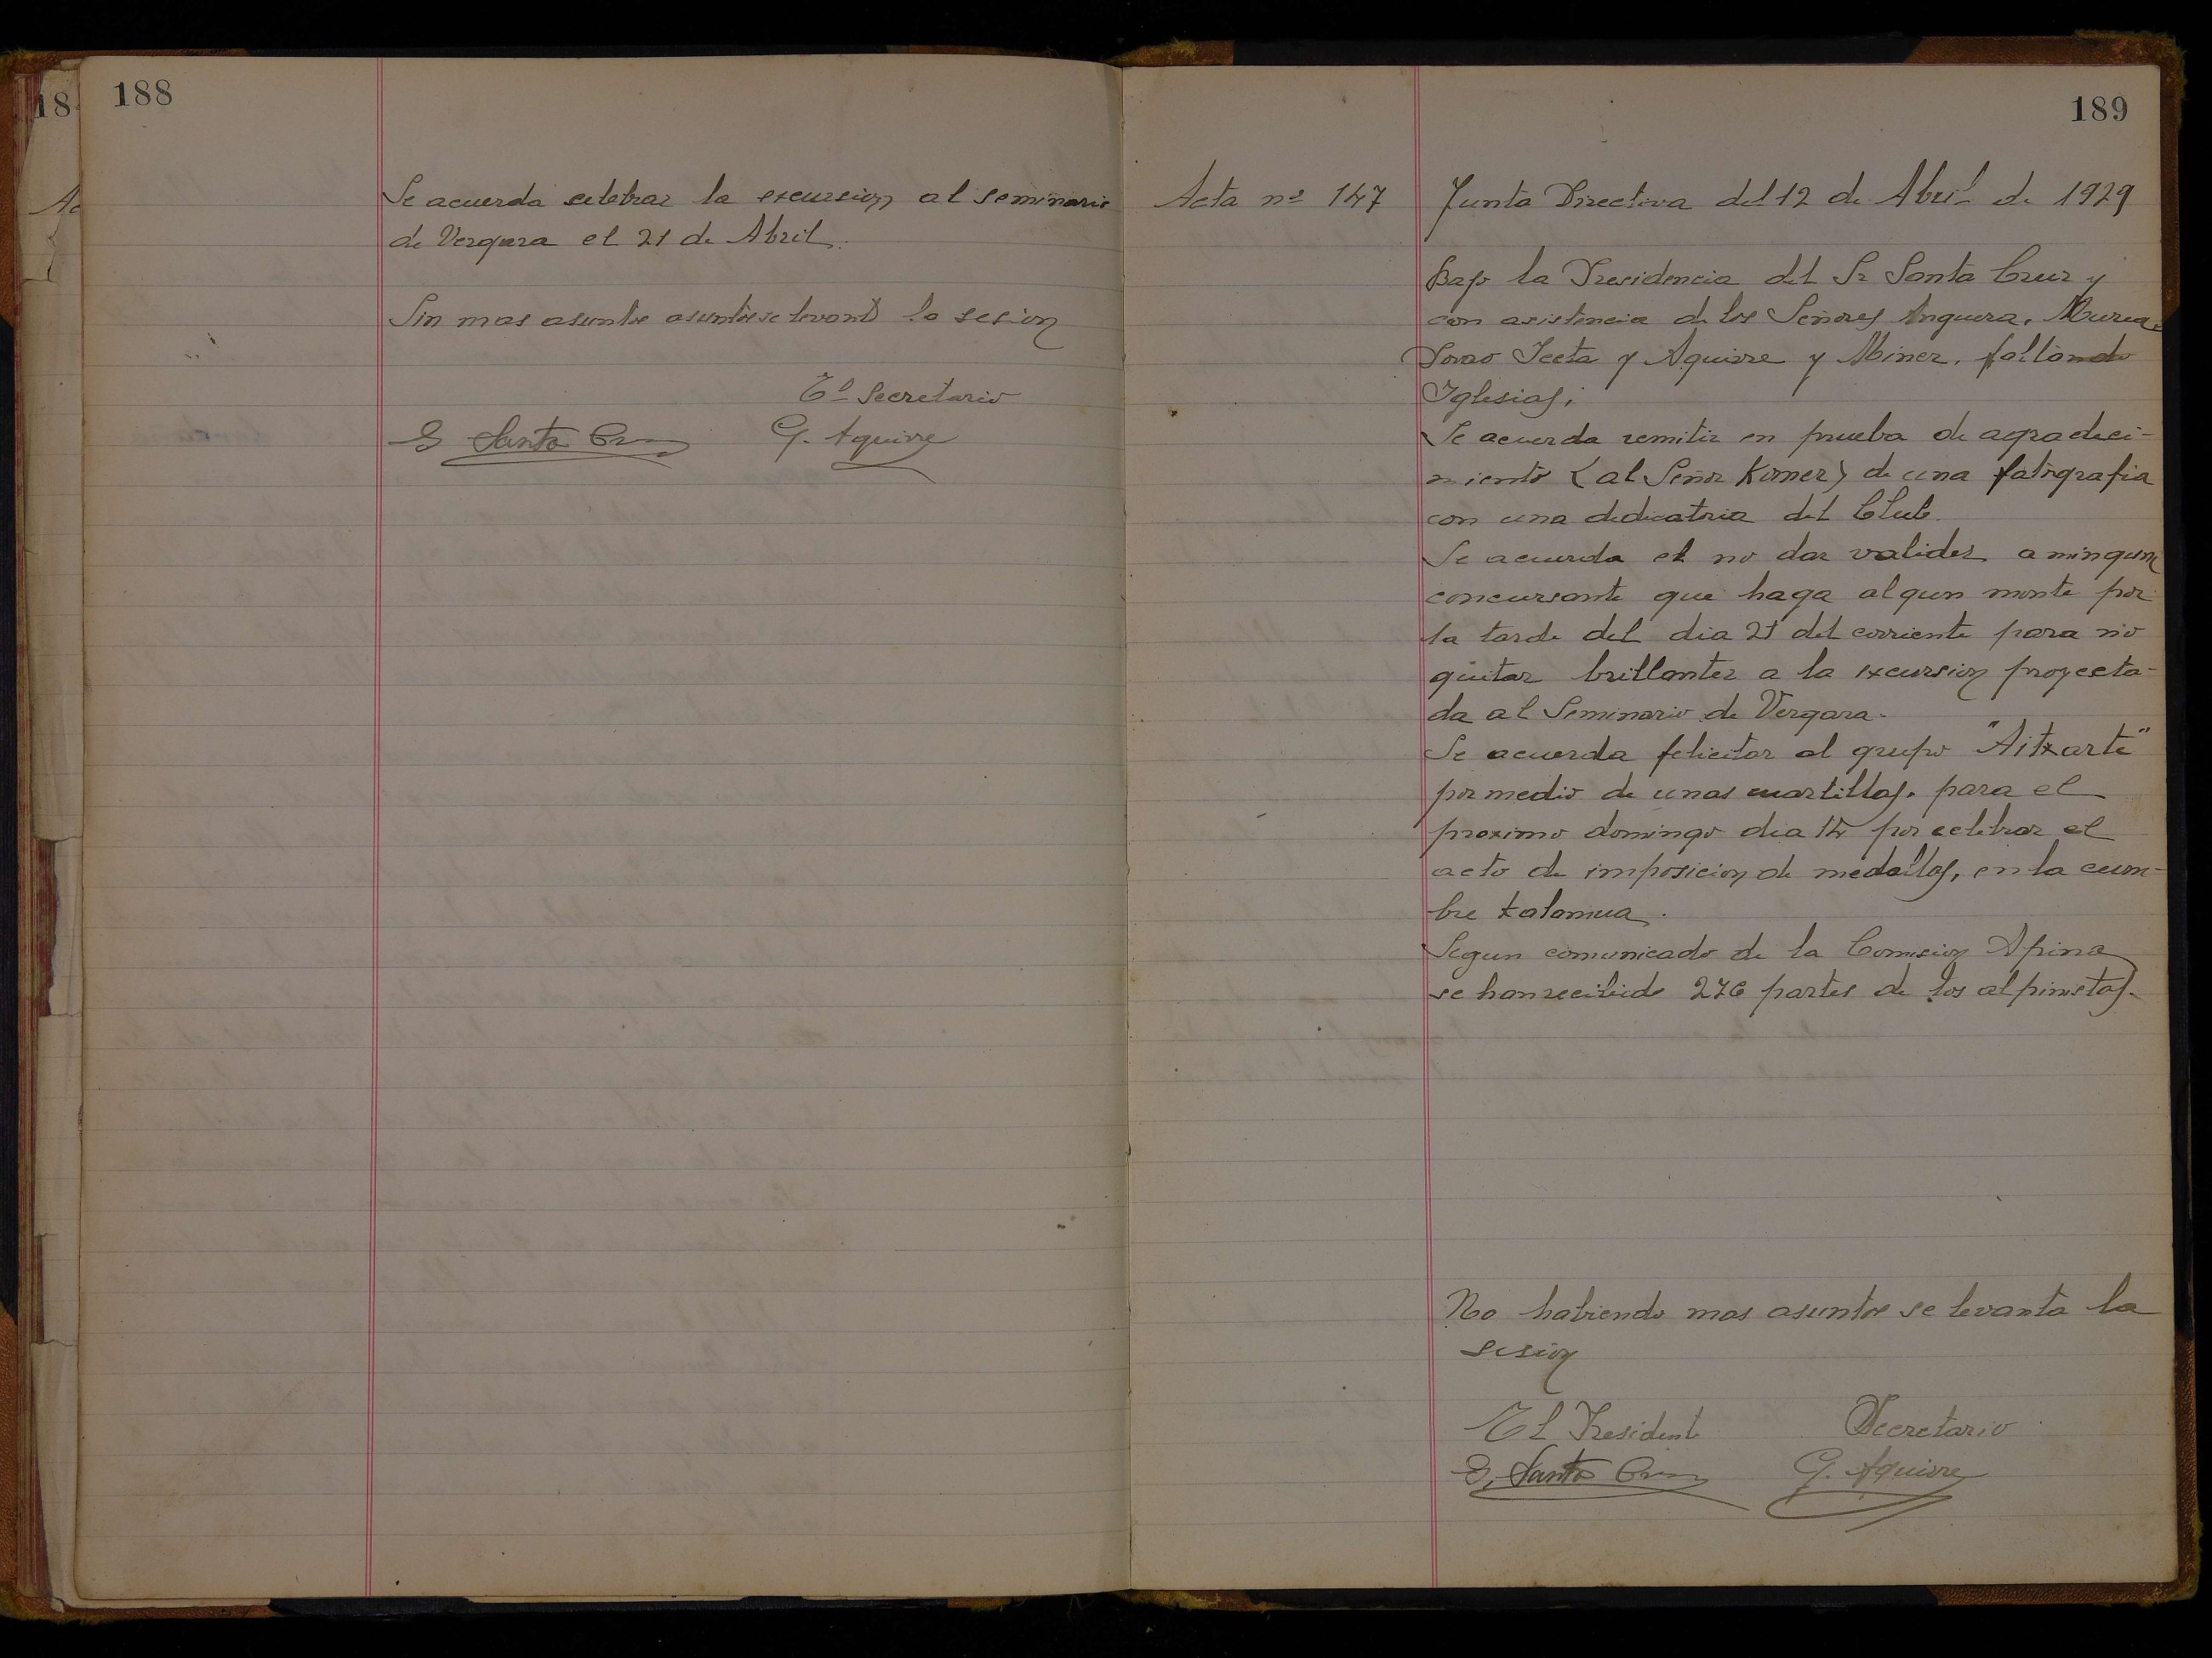 188
Se acuerda celebrar la excursion al seminario
de Vergara el 21 de Abril.
Sin mas asuntos asuntos se levantó la sesion
El Secretario
E Santa Cruz
G. Aguirre
189
Acta nº 147
Junta Directiva del 12 de Abril de 1929
Bajo la Presidencia del Sr Santa Cruz y
con asistencia de los Señores Anguera, Murua,
Iceta y Aguirre y Miner, faltando
Iglesias;
Se acuerda remitir en prueba de agradeci-
miento (al Señor Kirner) de una fatografia
con una dedicatoria del Club.
Se acuerda el no dar validez a ningun
concursante que haga algun monte por
la tarde del dia 21 del corriente para no
quitar brillantez a la excursion proyecta-
da al Seminario de Vergara.
Se acuerda felicitar al grupo "Aitxarte"
por medio de unas cuartillas, para el
proximo domingo dia 14 por celebrar el
acto de imposicion de medallas, en la cum-
bre Kalamua.
Segun comunicado de la Comision Apina
se han recibido 276 partes de los alpinistas.
No habiendo mas asuntos se levanta la
sesion
El President
Secretario
E, Santa Cruz
G. Aguirre